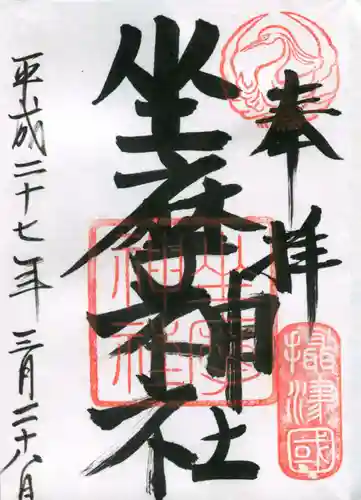 奉拝
攝津國
坐摩神社
坐摩神社
平成二十七年三月二十八日